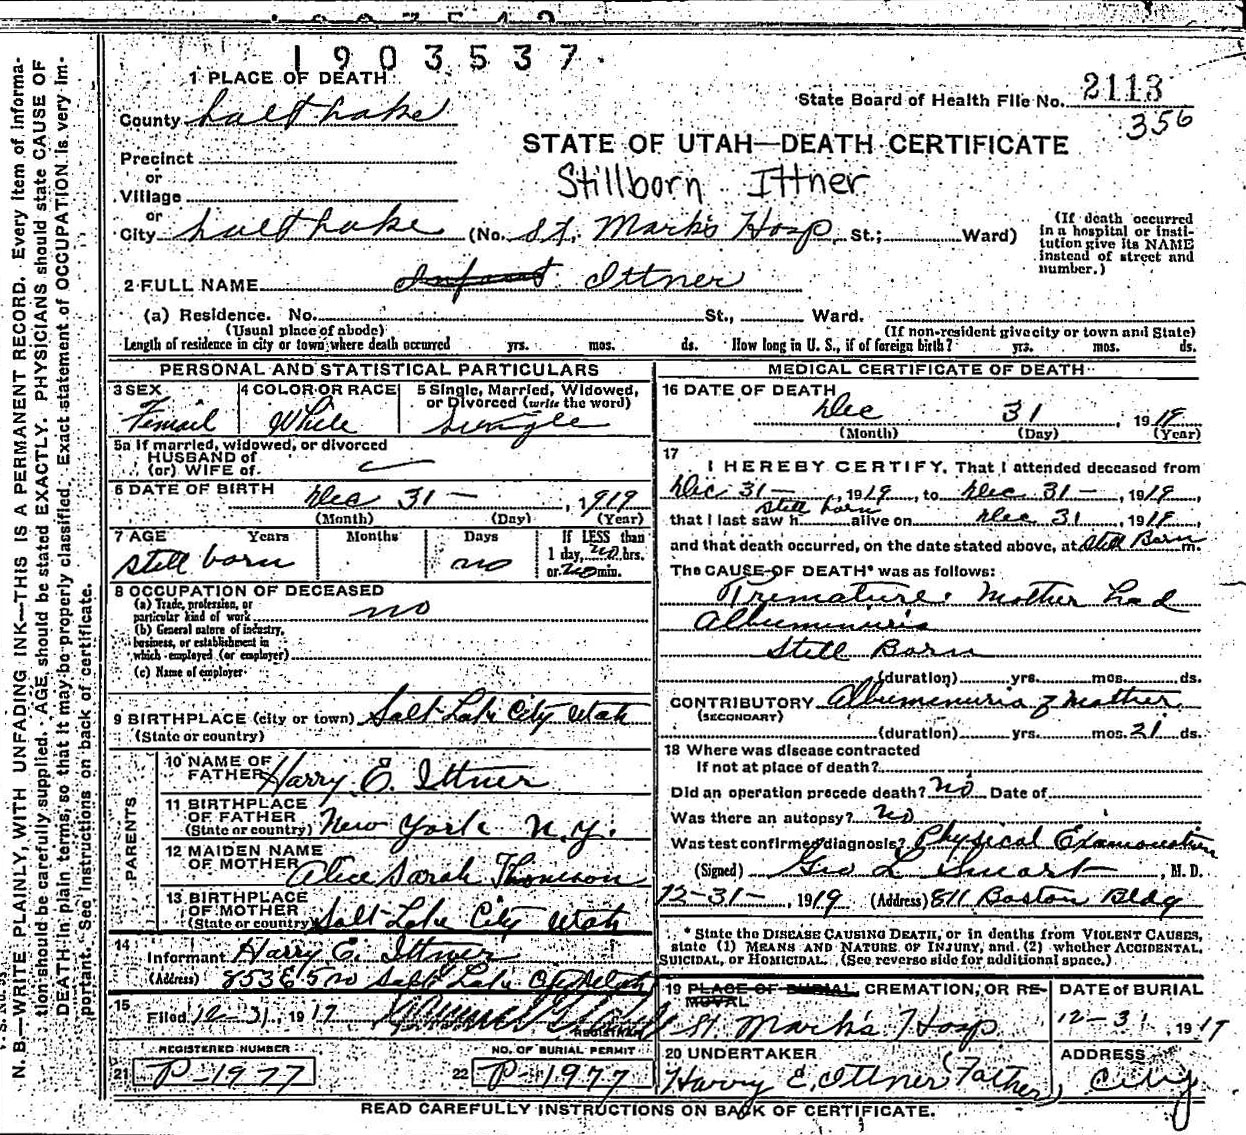 1903537
1 PLACE OF DEATH
State Board of Health File No. 2113
356
County Salt Lake
STATE OF UTAH—DEATH CERTIFICATE
Precinct
or
Stillborn Ittner
Village
or
City Salt Lake (No. St. Mark's Hosp St.; Ward)
(If death occurred in a hospital or institution give its NAME instead of street and number.)
2 FULL NAME Infant Ittner
(a) Residence. No. St., Ward.
(Usual place of abode) (If non-resident give city or town and State)
Length of residence in city or town where death occurred yrs. mos. ds. How long in U. S., if of foreign birth? yrs. mos. ds.
PERSONAL AND STATISTICAL PARTICULARS
3 SEX 4 COLOR OR RACE 5 Single, Married, Widowed, or Divorced (write the word)
Femail White Single
5a If married, widowed, or divorced
HUSBAND of
(or) WIFE of
6 DATE OF BIRTH Dec 31 — , 1919
(Month) (Day) (Year)
7 AGE Years Months Days If LESS than
1 day, no hrs.
or no min.
still born no
8 OCCUPATION OF DECEASED
(a) Trade, profession, or
particular kind of work no
(b) General nature of industry,
business, or establishment in
which employed (or employer)
(c) Name of employer
9 BIRTHPLACE (city or town) Salt Lake City Utah
(State or country)
PARENTS
10 NAME OF FATHER Harry E. Ittner
11 BIRTHPLACE OF FATHER (State or country) New York N.Y.
12 MAIDEN NAME OF MOTHER Alice Sarah
13 BIRTHPLACE OF MOTHER (State or country) Salt Lake City Utah
14
Informant Harry E. Ittner
(Address) 853 E 5 no Salt Lake City Utah
15
Filed 12-31, 1919
REGISTRAR
REGISTERED NUMBER NO. OF BURIAL PERMIT
21 P-1977 22 P-1977
MEDICAL CERTIFICATE OF DEATH
16 DATE OF DEATH
Dec 31, 1919
(Month) (Day) (Year)
17
I HEREBY CERTIFY, That I attended deceased from
Dec 31 —, 1919, to Dec 31 —, 1919,
still born
that I last saw h alive on Dec 31, 1919,
and that death occurred, on the date stated above, at Still Born m.
The CAUSE OF DEATH* was as follows:
Premature. Mother had
Albumenuria
Still Born
(duration) yrs. mos. ds.
CONTRIBUTORY Albumenuria of Mother
(SECONDARY)
(duration) yrs. mos. 21 ds.
18 Where was disease contracted
If not at place of death?
Did an operation precede death? no Date of
Was there an autopsy? no
Was test confirmed diagnosis? Physical Examonation
(Signed) Geo L Smart, M. D.
12-31-, 1919 (Address) 811 Boston Bldg
* State the DISEASE CAUSING DEATH, or in deaths from VIOLENT CAUSES,
state (1) MEANS AND NATURE OF INJURY, and (2) whether ACCIDENTAL,
SUICIDAL, or HOMICIDAL. (See reverse side for additional space.)
19 PLACE OF BURIAL, CREMATION, OR REMOVAL DATE of BURIAL
St. Mark's Hosp 12-31, 1919
20 UNDERTAKER ADDRESS
Harry E. Ittner (Father) City
READ CAREFULLY INSTRUCTIONS ON BACK OF CERTIFICATE.
N. B.—WRITE PLAINLY, WITH UNFADING INK—THIS IS A PERMANENT RECORD. Every item of information should be carefully supplied. AGE should be stated EXACTLY. PHYSICIANS should state CAUSE OF DEATH in plain terms, so that it may be properly classified. Exact statement of OCCUPATION is very important. See instructions on back of certificate.